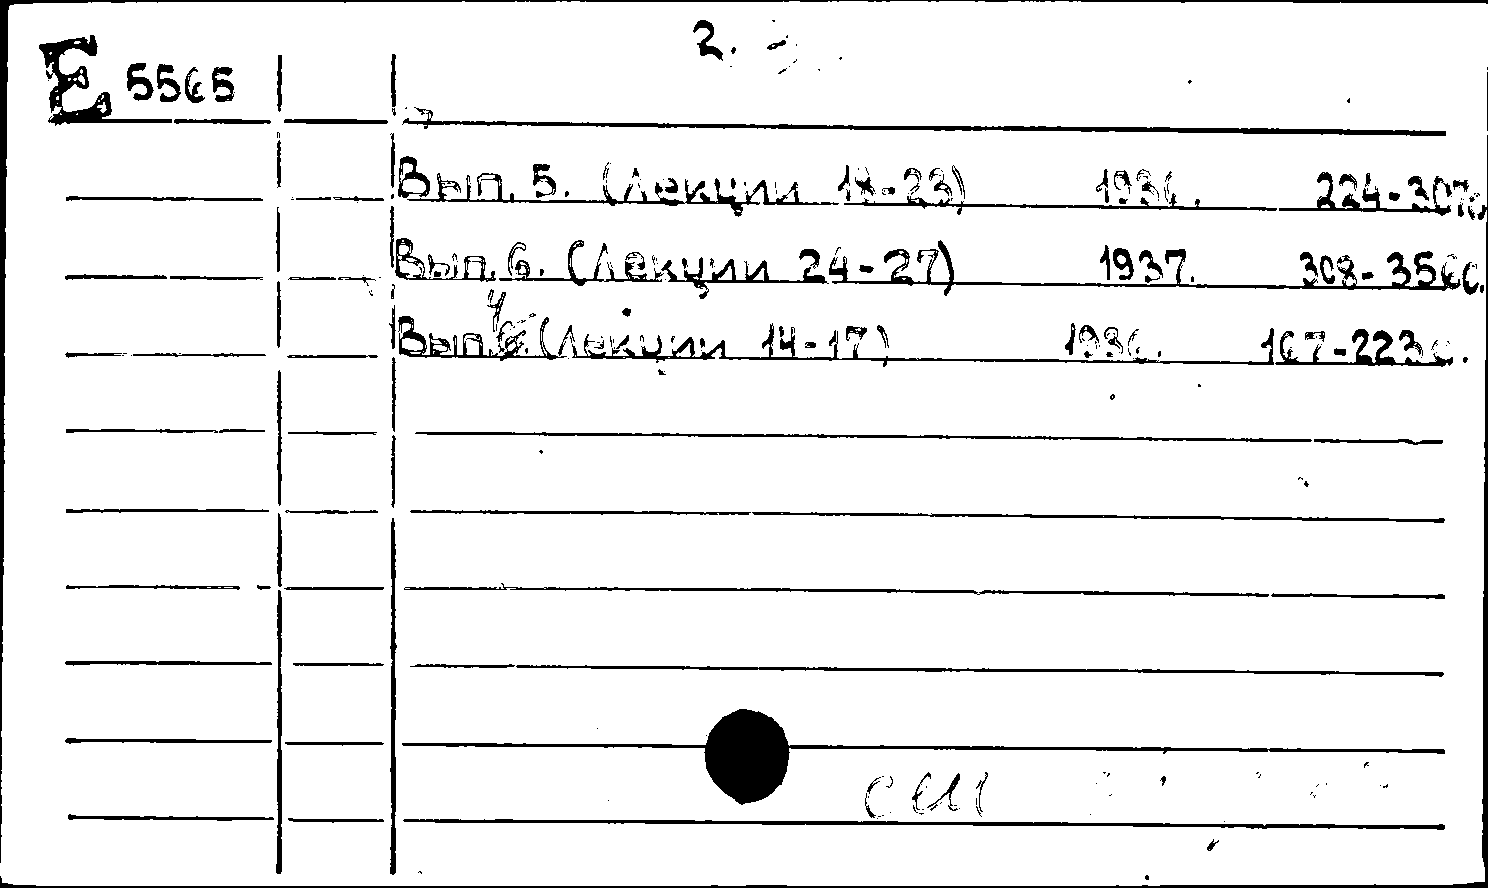 2.
E 5565
Вып. 5. (Лекции 18-23) 1936. 224-307с.
Вып. 6. (Лекции 24-27) 1937. 308-356с.
Вып. 4 (Лекции 14-17) 1936. 167-223с.
см